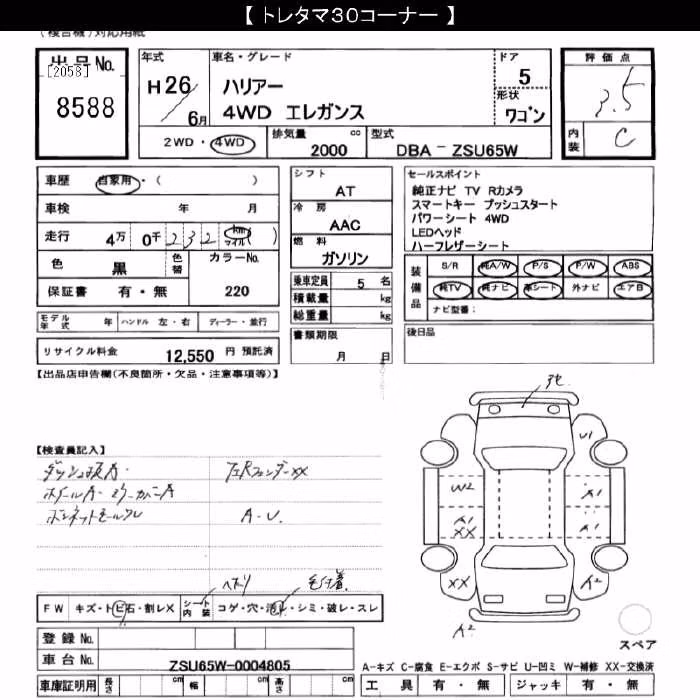 【 トレタマ３０コーナー 】
(複合機)対応用紙
出品 No.
[2058]
8588
年式
H 26/6月
車名・グレード
ハリアー
4WD エレガンス
ドア
5
形状
ワゴン
評価点
3.5
内装
C
2WD・4WD
排気量
cc
2000
型式
DBA － ZSU65W
車歴 自家用・( )
車検 年 月
走行 4万 0千 2 3 2 km マイル ( )
色 黒 色替 カラーNo.
保証書 有・無 220
モデル年式 年 ハンドル 左・右 ディーラー・並行
リサイクル料金 12,550 円 預託済
シフト
AT
冷房
AAC
燃料
ガソリン
乗車定員 5 名
積載量 kg
総重量 kg
書類期限
月 日
セールスポイント
純正ナビ TV Rカメラ
スマートキー プッシュスタート
パワーシート 4WD
LEDヘッド
ハーフレザーシート
装備品
S/R 純A/W P/S P/W ABS
純TV 純ナビ 革シート 外ナビ エアB
ナビ型番:
後日品
【出品店申告欄(不良箇所・欠品・注意事項等)】
【検査員記入】
ダッシュ板A・
左Rフェンダー XX
ホイールA・ミラーカバーA
ボンネットモールクレ
A・U.
U1
W2
A1
A1
XX
A1
XX
A2
A2
FW キズ・トビ石・割レX シート内装 コゲ・穴・汚レ・シミ・破レ・スレ
登録 No.
車台 No. ZSU65W-0004805
車庫証明用 長さ cm 幅 cm 高さ cm
スペア
A-キズ C-腐食 E-エクボ S-サビ U-凹ミ W-補修 XX-交換済
工具 有・無 ジャッキ 有・無